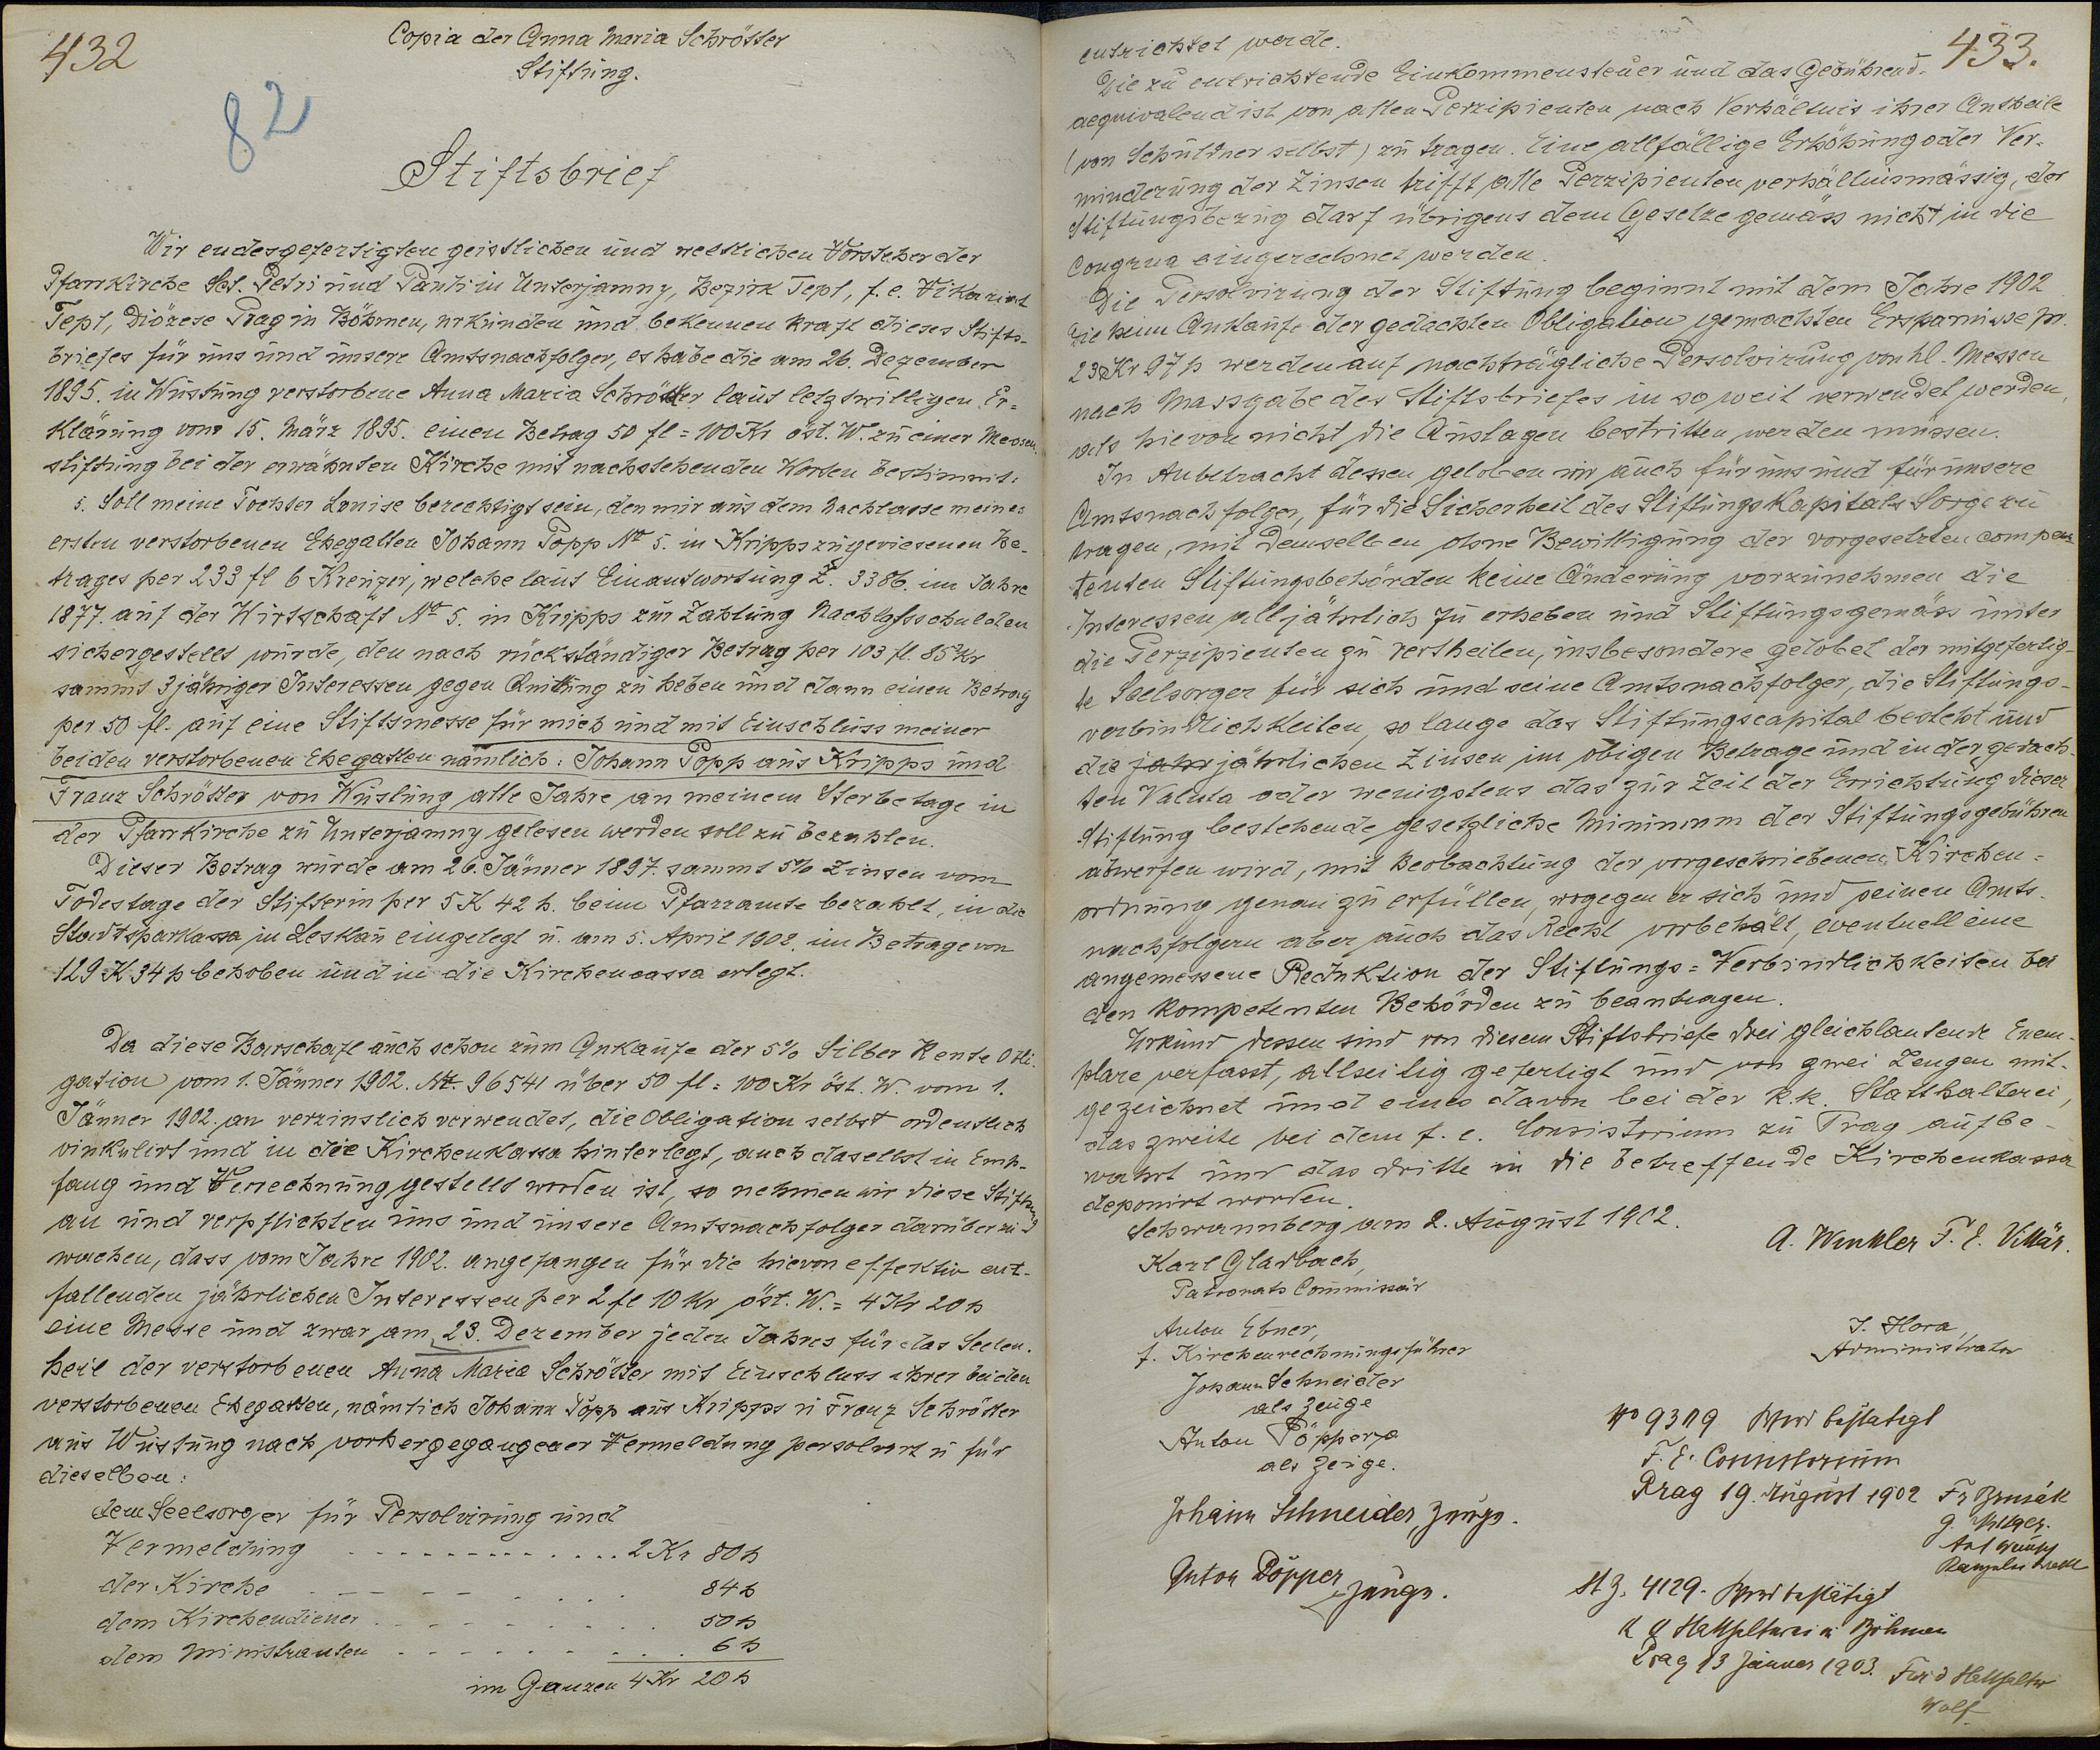 432
Copia der Anna Maria Schrötter
Stiftung.
82
Stiftsbrief
Wir endesgefertigten geistlichen und weltlichen Vorsteher der
Pfarrkirche Sct. Petri und Pauli in Unterjamny, Bezirk Tepl, f. e. Vikariat
Tepl, Diözese Prag in Böhmen, urkunden und bekennen kraft dieses Stifts-
briefes für uns und unsere Amtsnachfolger, es habe die am 26. Dezember
1895. in Wüstung verstorbene Anna Maria Schrötter laut letztwilligen Er=
klärung vom 15. März 1895. einen Betrag 50 fl = 100 Kr öst. W. zu einer Messen
stiftung bei der erwähnten Kirche mit nachstehenden Worten bestimmt:
5. Soll meine Tochter Louise berechtigt sein, den mir aus dem Nachlasse meines
ersten verstorbenen Ehegatten Johann Popp No 5. in Kripps zugewiesenen Be-
trages per 233 fl 6 Kreuzer, welche laut Einantwortung Z. 3386. im Jahre
1877. auf der Wirtschaft No 5. in Kripps zur Zahlung Nachlassschulden
sichergestellt wurde, den nach rückständiger Betrag per 103 fl. 85 Kr
sammt 3 jähriger Interessen gegen Quittung zu heben und dann einen Betrag
per 50 fl. auf eine Stiftsmesse für mich und mit Einschluss meiner
beiden verstorbenen Ehegatten nämlich: Johann Popp aus Kripps und
Franz Schrötter von Wüstung alle Jahre an meinem Sterbetage in
der Pfarrkirche zu Unterjamny gelesen werden soll zu bezahlen.
Dieser Betrag wurde am 26. Jänner 1897. sammt 5% Zinsen vom
Todestage der Stifterin per 5 K 42 h. beim Pfarramte bezahlt, in die
Stadtsparkassa in Leskau eingelegt u. am 5. April 1902. im Betrage von
129 K 34 h behoben und in die Kirchencassa erlegt.
Da diese Barschaft auch schon zum Ankaufe der 5% Silber Rente Obli.
gation vom 1. Jänner 1902. Nr. 96541 über 50 fl = 100 Kr öst. W. vom 1.
Jänner 1902. an verzinslich verwendet, die Obligation selbst ordentlich
vinkulirt und in die Kirchenkassa hinterlegt, auch daselbst in Emp-
fang und Verrechnung gestellt worden ist, so nehmen wir diese Stiftung
an und verpflichten uns und unsere Amtsnachfolger darüber zu
wachen, dass vom Jahre 1902. angefangen für die hievon effektiv ent-
fallenden jährlichen Interessen per 2 fl 10 Kr öst. W. = 4 Kr 20 h
eine Messe und zwar am 23. Dezember jeden Jahres für das Seelen.
heil der verstorbenen Anna Maria Schrötter mit Einschluss ihrer beiden
verstorbenen Ehegatten, nämlich Johann Popp aus Kripps u Franz Schrötter
aus Wüstung nach vorhergegangener Vermeldung persolvirt u für
dieselben:
dem Seelsorger für Persolvirung und
Vermeldung ............ 2 Kr 80 h
der Kirche ............ 84 h
dem Kirchendiener ............ 50 h
dem Ministranten ............ 6 h
im Ganzen 4 Kr 20 h
433.
entrichtet werde.
Die zu entrichtende Einkommensteuer und das Gebührend.
aequivalend ist von allen Perzipienten nach Verhältnis ihrer Antheile
(von Schuldner selbst) zu tragen. Eine allfällige Erhöhung oder Ver-
minderung der Zinsen trifft alle Perzipienten verhältnismässig, der
Stiftungsbezug darf übrigens dem Gesetze gemäss nicht in die
Congrua eingerechnet werden.
Die Persolvirung der Stiftung beginnt mit dem Jahre 1902
Die beim Ankaufe der gedachten Obligation gemachten Ersparnisse pr.
23 Kr 97 h werden auf nachträgliche Persolvirung von hl. Messen
nach Massgabe des Stiftsbriefes in so weit verwendet werden,
als hievon nicht die Auslagen bestritten werden müssen.
In Anbetracht dessen geloben wir auch für uns und für unsere
Amtsnachfolger, für die Sicherheit des Stiftungskapitals Sorge zu
tragen, mit Demselben ohne Bewilligung der vorgesetzten compe
tenten Stiftungsbehörden keine Änderung vorzunehmen die
Interessen alljährlich zu erheben und Stiftungsgemäss unter
die Perzipienten zu vertheilen, insbesondere gelobet der mitgefertig-
te Seelsorger für sich und seine Amtsnachfolger, die Stiftungs-
verbindlichkeiten, so lange das Stiftungscapital besteht und
die jahr jährlichen Zinsen im obigen Betrage und in der gedach-
ten Valuta oder wenigstens das zur Zeit der Errichtung dieser
Stiftung bestehende gesetzliche Minimum der Stiftungsgebühren
abwerfen wird, mit Beobachtung der vorgeschriebenen Kirchen=
ordnung genau zu erfüllen, wogegen er sich und seinen Amts-
nachfolgern aber auch das Recht vorbehält, eventuell eine
angemessene Reduktion der Stiftungs=Verbindlichkeiten bei
den kompetenten Behörden zu beantragen.
Urkund dessen sind von diesem Stiftsbriefe drei gleichlautende Exem-
plare verfasst, allseitig gefertigt und von zwei Zeugen mit-
gezeichnet und eines davon bei der k.k. Statthalterei,
das zweite bei dem f. e. Consistorium zu Prag aufbe-
wahrt und das dritte in die betreffende Kirchenkassa
deponirt worden.
Schwannberg am 2. August 1902.
A. Winkler F. E. Vikär.
Karl Gladbach,
Patronats Commissär
Anton Ebner,
f. Kirchenrechnungsführer
J. Hora,
Administrator
Johann Schneider
als Zeuge
Anton Pöpperl
als Zeige.
No 9319 Wird bestätigt
F. E. Consistorium
Prag 19. August 1902
Johann Schneider, Zeuge.
Anton Pöpper, Zeuge.
St Z. 4129. Wird bestätigt
K K Statthalterei in Böhmen
Prag 13 Jänner 1903.
Wolf